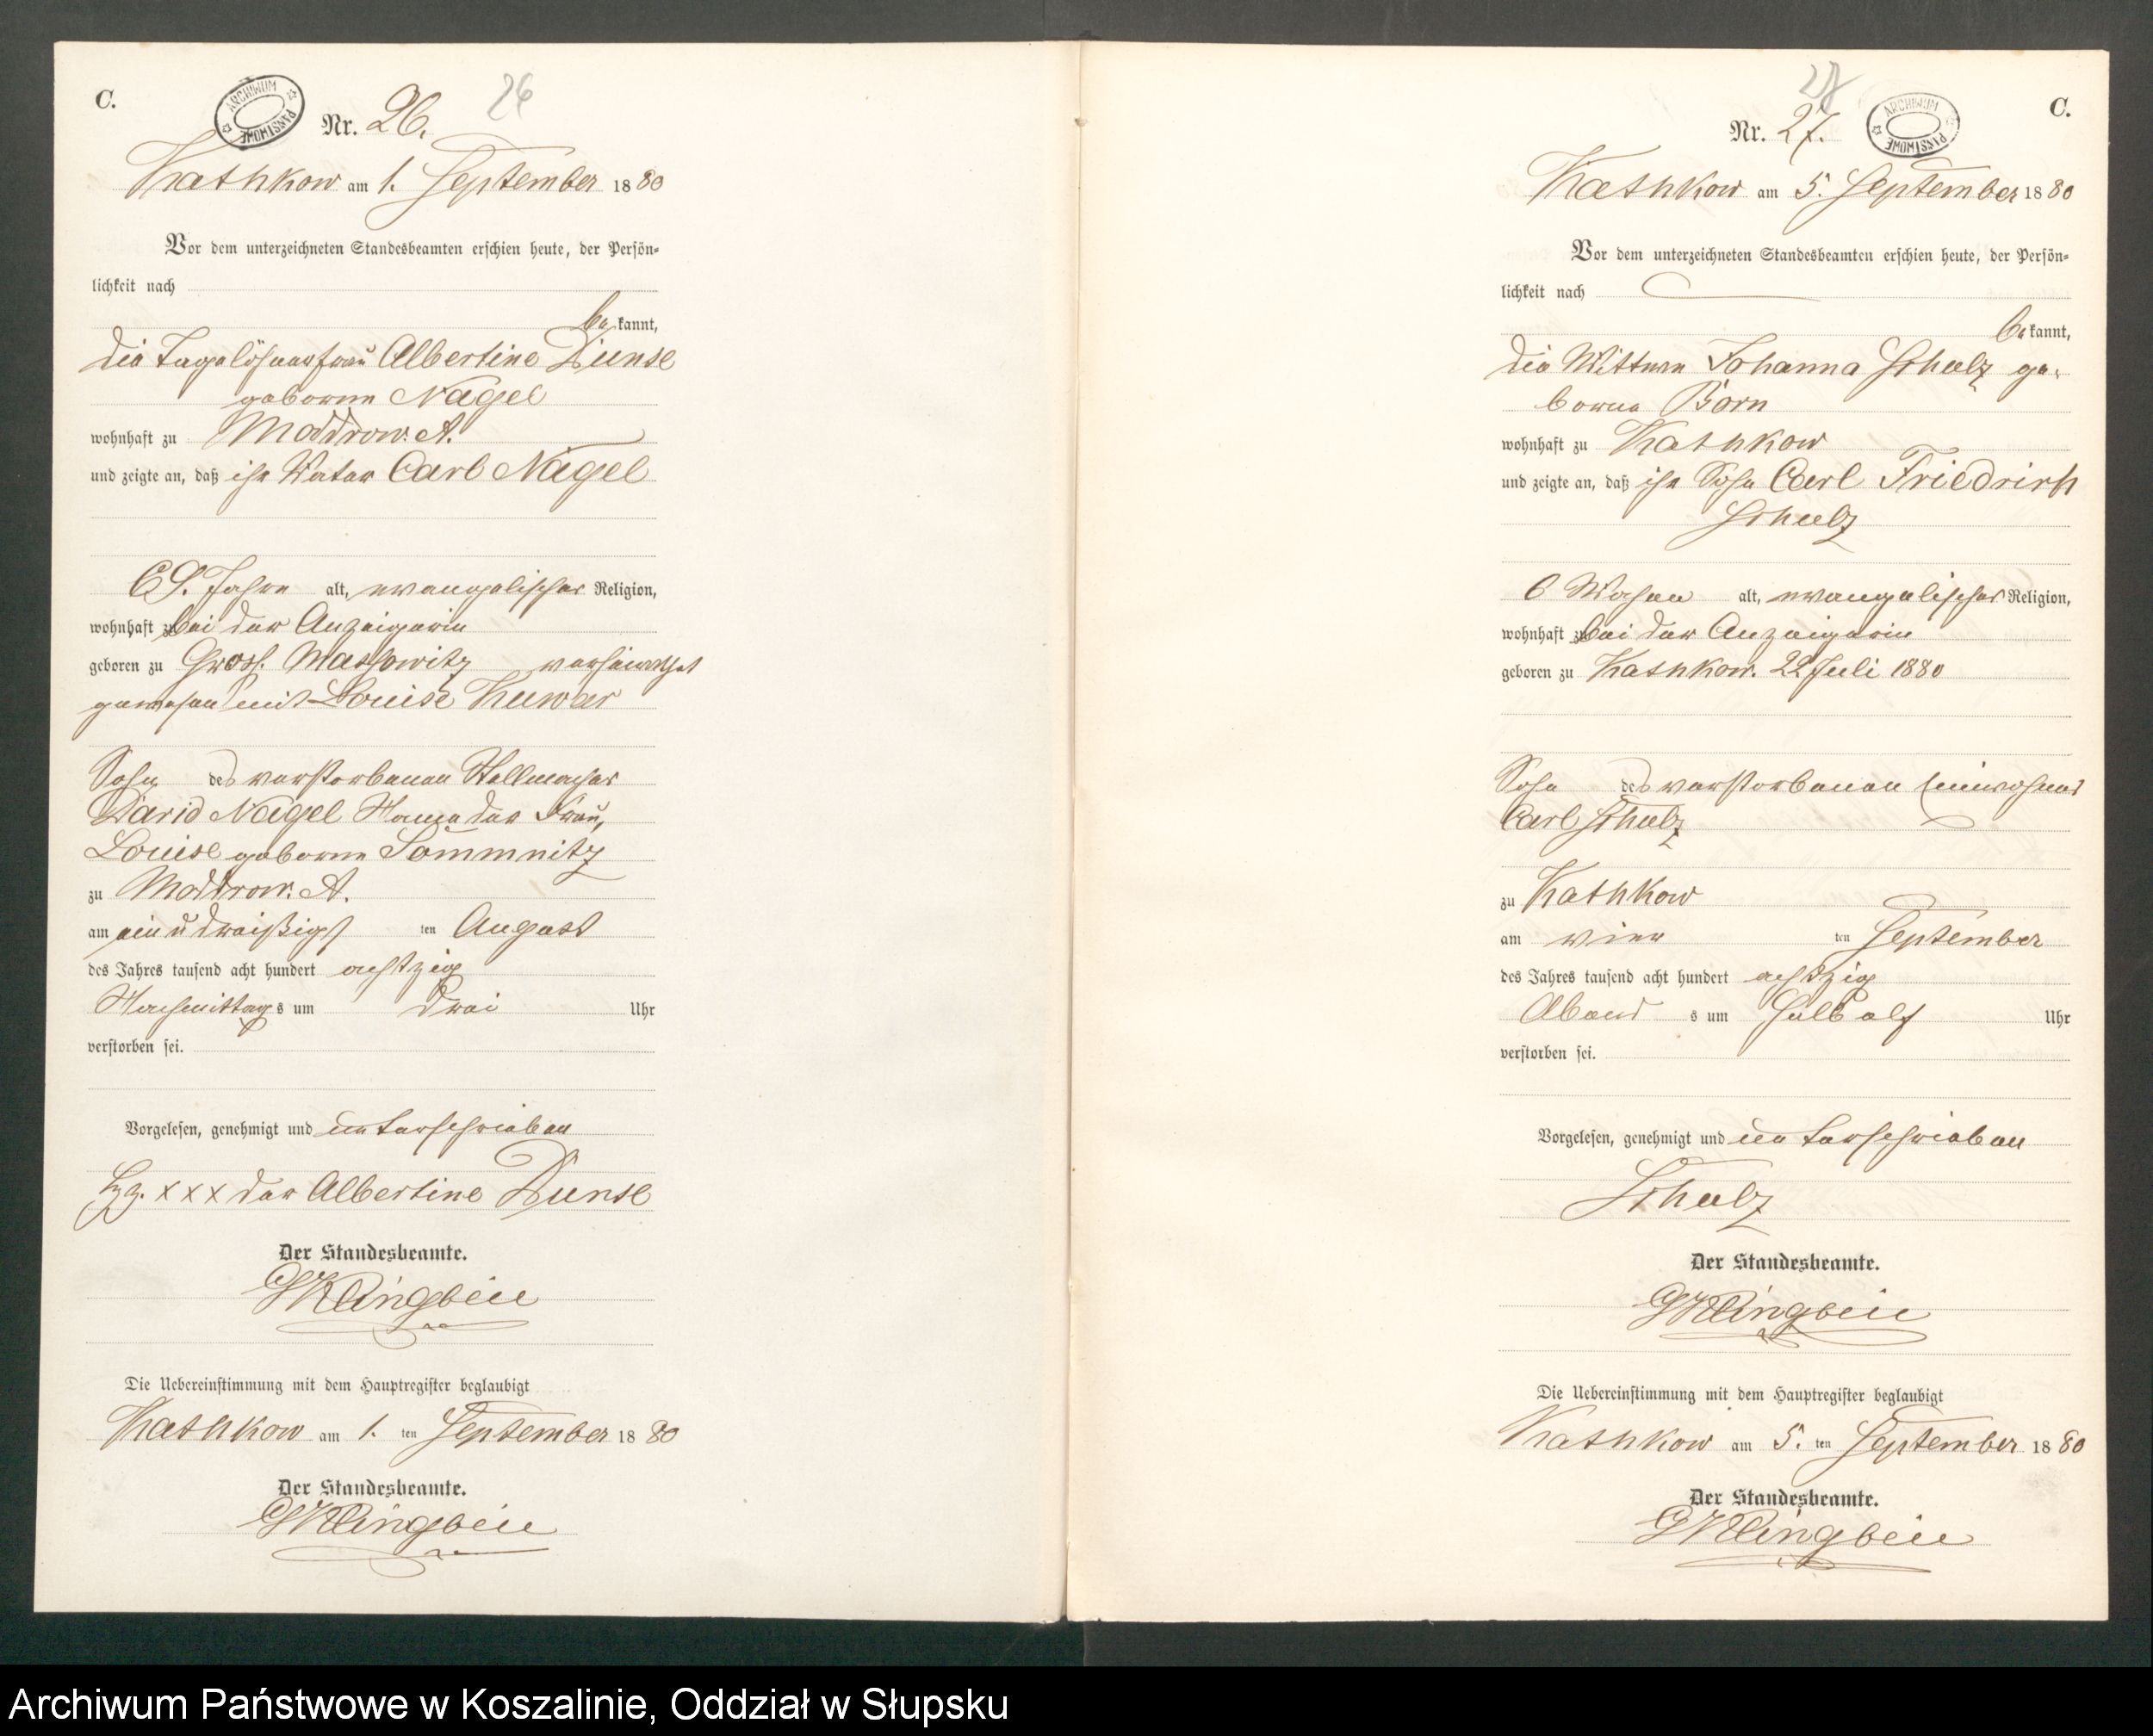 C.
ARCHIWUM PAŃSTWOWE
26
Nr. 26.
Kathkow am 1. September 1880
Vor dem unterzeichneten Standesbeamten erschien heute, der Persön-
lichkeit nach
bekannt,
die Tagelöhnerfrau Albertine Dunse
geborne Nagel
wohnhaft zu Moddrow. A.
und zeigte an, daß ihr Vater Carl Nagel
Jahre alt, evangelischer Religion,
wohnhaft zu bei der Anzeigerin
geboren zu Gross. Massowitz verheirathet
gewesen mit Louise
Sohn des verstorbenen Stellmacher
David Nagel Name der Frau,
Louise geborne
zu Moddrow. A.
am ein u dreißigst ten August
des Jahres tausend acht hundert achtzig
Nachmittags um drei Uhr
verstorben sei.
Vorgelesen, genehmigt und unterschrieben
Hz. xxx der Albertine Dunse
Der Standesbeamte.
GKlingbeil
Die Uebereinstimmung mit dem Hauptregister beglaubigt
Kathkow am 1. ten September 1880
Der Standesbeamte.
GKlingbeil
27
C.
ARCHIWUM PAŃSTWOWE
Nr. 27.
Kathkow am 5. September 1880
Vor dem unterzeichneten Standesbeamten erschien heute, der Persön-
lichkeit nach
bekannt,
die Wittwe Johanna Schulz ge-
borne Born
wohnhaft zu Kathkow
und zeigte an, daß ihr Sohn Carl Friedrich
Schulz
6 Wochen alt, evangelischer Religion,
wohnhaft zu bei der Anzeigerin
geboren zu Kathkow. 22 Juli 1880
Sohn des verstorbenen Einwohner
Carl Schulz
zu Kathkow
am vier ten September
des Jahres tausend acht hundert achtzig
Abend s um halb elf Uhr
verstorben sei.
Vorgelesen, genehmigt und unterschrieben
Schulz
Der Standesbeamte.
GKlingbeil
Die Uebereinstimmung mit dem Hauptregister beglaubigt
Kathkow am 5. ten September 1880
Der Standesbeamte.
GKlingbeil
Archiwum Państwowe w Koszalinie, Oddział w Słupsku